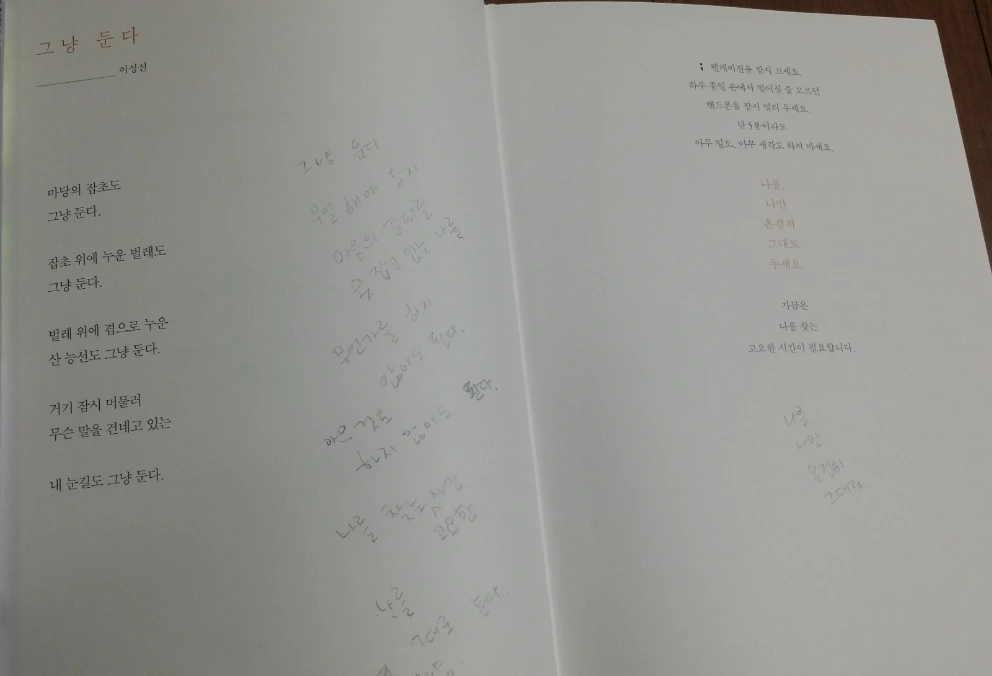 그냥 둔다
이성선
마당의 잡초도
그냥 둔다.
잡초 위에 누운 벌레도
그냥 둔다.
벌레 위에 겹으로 누운
산 능선도 그냥 둔다.
거기 잠시 머물러
무슨 말을 건네고 있는
내 눈길도 그냥 둔다.
그냥 둔다
무얼 해야 할지
마음의 갈피를
못 잡고 있는 나를
무언가를 하지
않아도 된다.
아무 것도
하지 않아도 된다.
나를 찾는 시간
고요한
나를
그대로 둔다.
; 텔레비전을 잠시 끄세요.
하루 종일 손에서 떨어질 줄 모르던
핸드폰을 잠시 멀리 두세요.
단 5분이라도
아무 일도, 아무 생각도 하지 마세요.
나를,
나만
온전히
그대로
두세요.
가끔은
나를 찾는
고요한 시간이 필요합니다.
나를,
나만
온전히
그대로